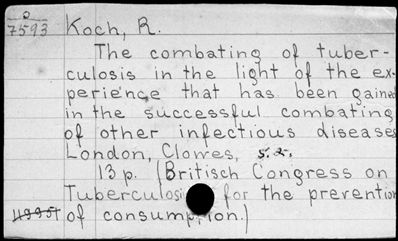 o
7593 Koch, R.
The combating of tuber-
culosis in the light of the ex-
perience that has been gained
in the successful combating
of other infectious diseases
London, Clowes, s.a.
13 p. (Britisch Congress on
Tuberculosi for the prevention
of consumption.)